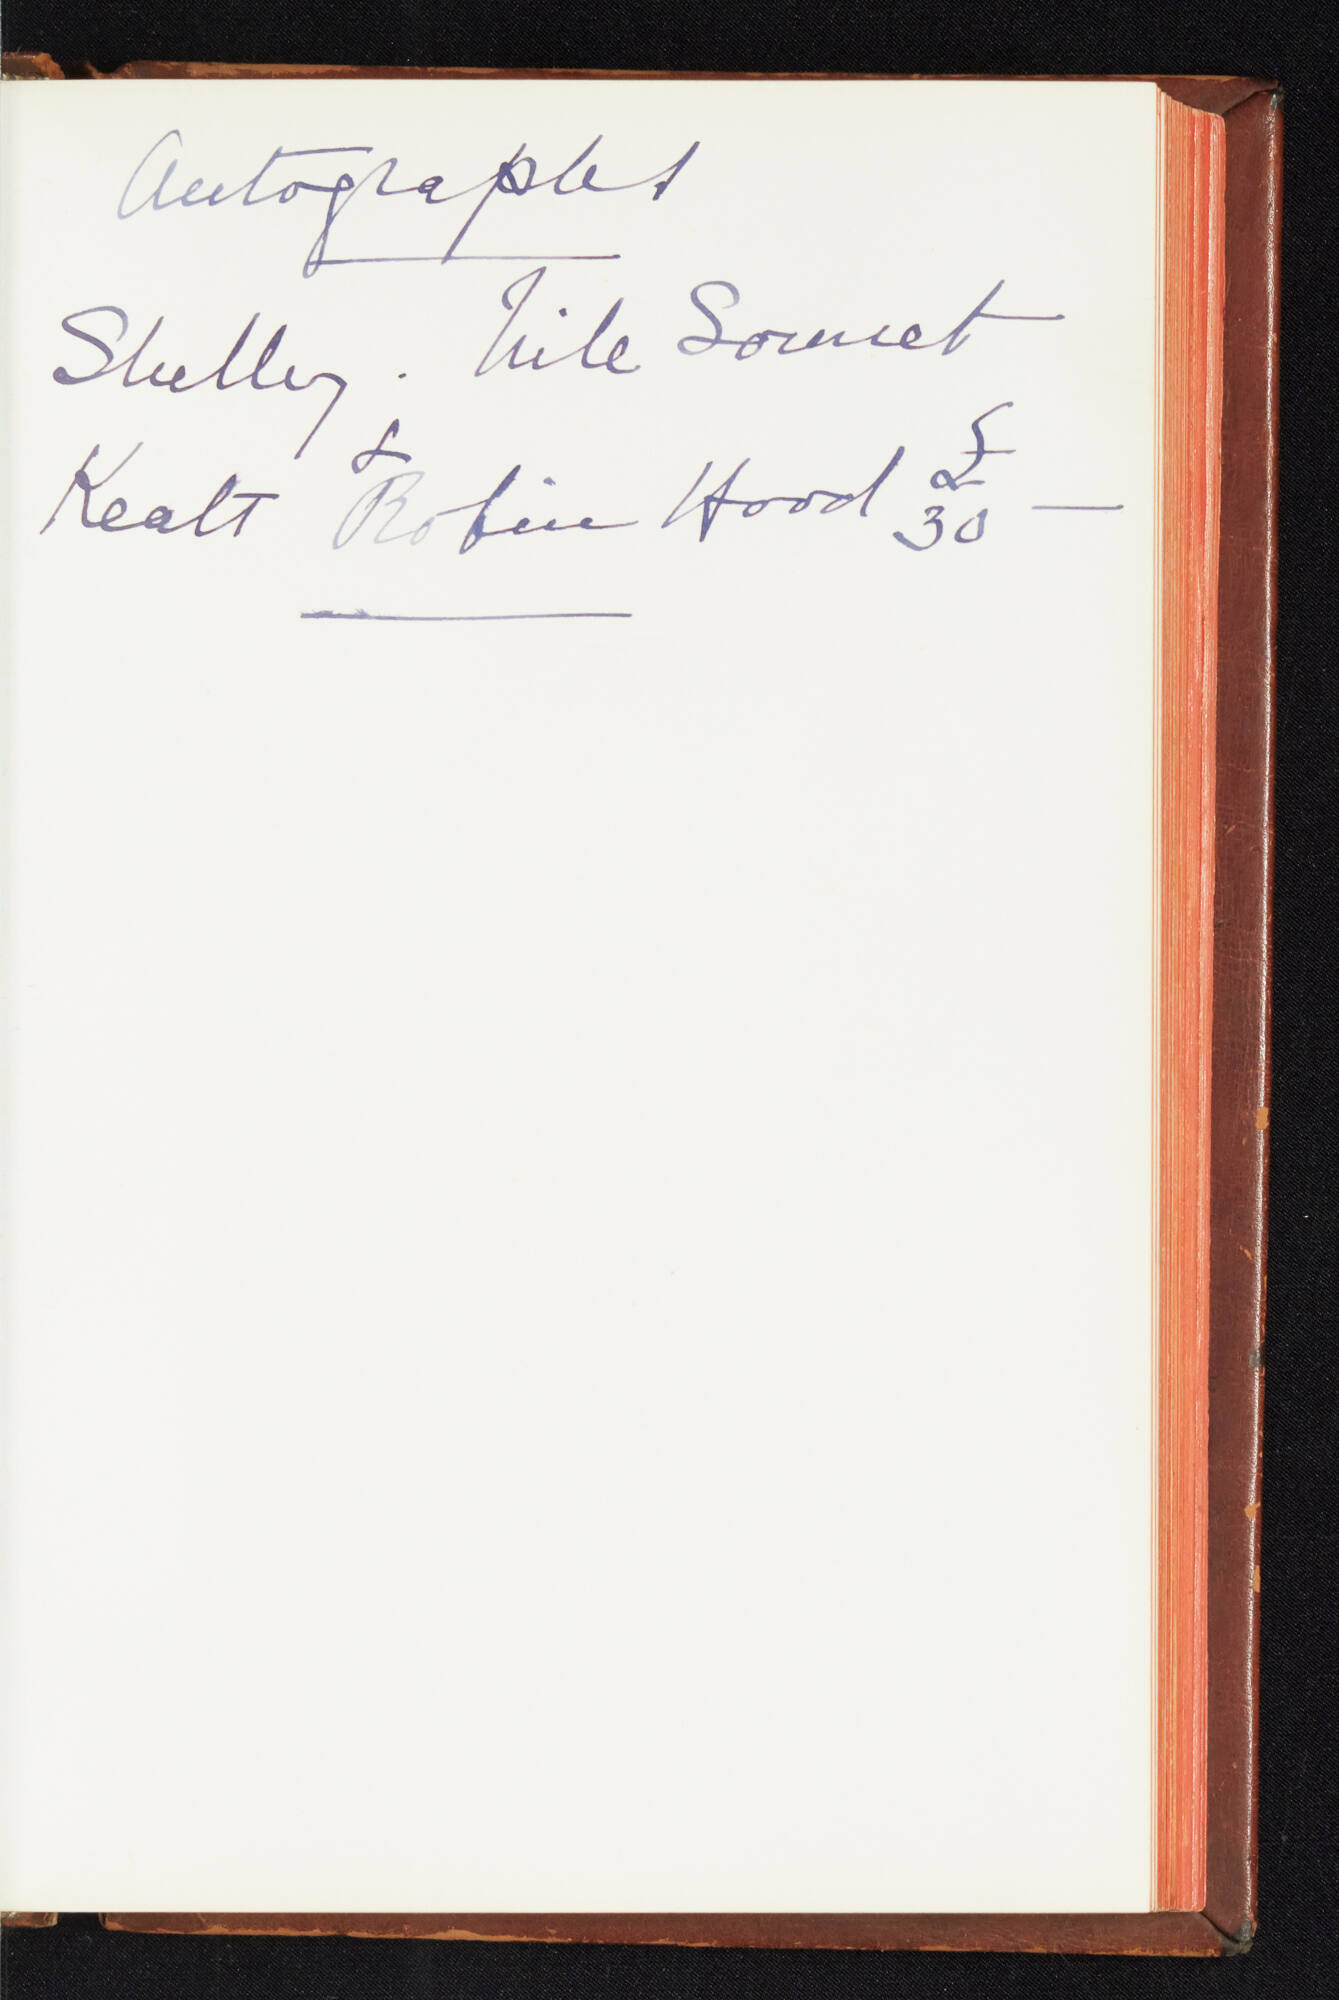 Autographs
Shelley. Nile Sonnet
&
Keats Robin Hood £30 —